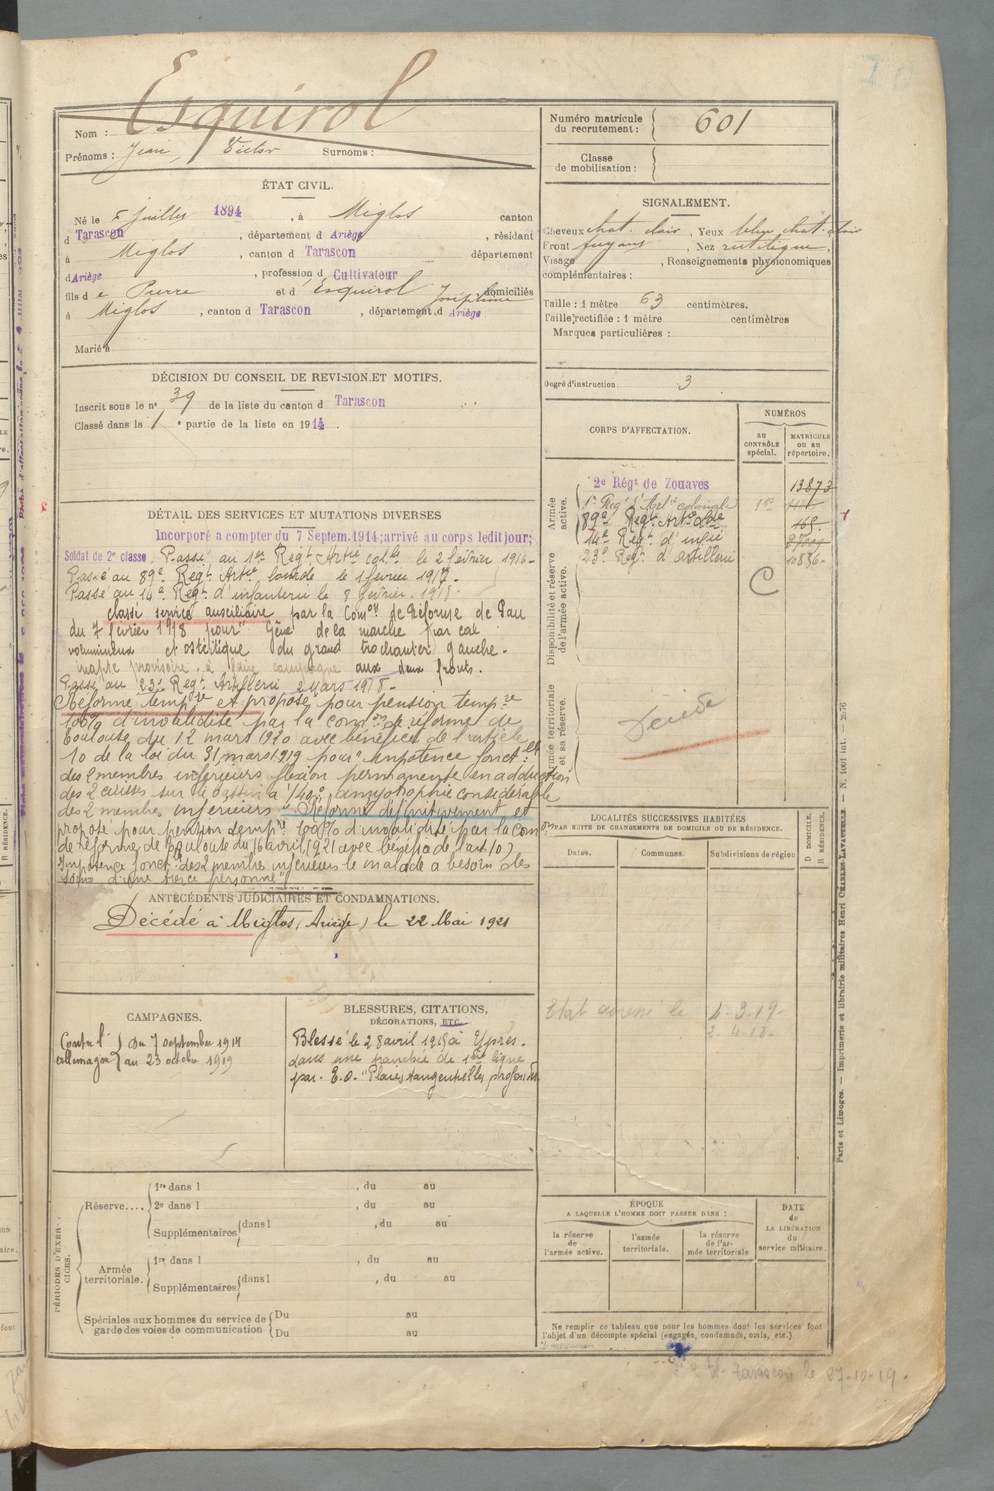 Esquirol
Nom :
Prénoms : Jean, Victor Surnoms :
Numéro matricule
du recrutement : 601
Classe
de mobilisation :
ÉTAT CIVIL.
Né le 5 juillet 1894, à Miglos canton
d Tarascon, département d Ariège, résidant
à Miglos, canton d Tarascon département
d Ariège, profession d Cultivateur
fils de Pierre et d Esquirol Joséphine domiciliés
à Miglos, canton d Tarascon, département d Ariège
Marié à
SIGNALEMENT.
Cheveux chat. clair, Yeux bleu chat. clair
Front fuyant, Nez rectiligne.
Visage , Renseignements physionomiques
complémentaires :
Taille : 1 mètre 63 centimètres.
Taille rectifiée : 1 mètre centimètres
Marques particulières :
Degré d'instruction : 3
DÉCISION DU CONSEIL DE REVISION ET MOTIFS.
Inscrit sous le n° 39 de la liste du canton d Tarascon
Classé dans la 1e partie de la liste en 1914.
CORPS D'AFFECTATION.
NUMÉROS
AU CONTRÔLE spécial.
MATRICULE OU AU répertoire.
Armée active.
2e Régt de Zouaves 13873
1er Régt d'Artie coloniale
89e Régt Artie lde 165
14e Régt d'infie
23e Régt d'artillerie 10836
C
Disponibilité et réserve de l'armée active.
Armée territoriale et sa réserve.
Décédé
DÉTAIL DES SERVICES ET MUTATIONS DIVERSES
Incorporé a compter du 7 Septem. 1914; arrivé au corps ledit jour;
Soldat de 2e classe. Passé au 1er Régt Artie colle le 2 février 1916.
Passé au 89e Régt Artie lourde le 1 février 1917.
Passé au 14e Régt d'infanterie le 8 février 1918.
classé service auxiliaire par la Comon de Réforme de Pau
du 7 février 1918 pour "Gêne de la marche par cal
volumineux et ostéitique du grand trochanter gauche.
inapte provisoire à faire campagne aux deux fronts.
Passé au 23e Régt Artillerie 2 mars 1918.
Réformé tempre et proposé pour pension tempre
100% d'invalidité par la comon de réforme de
Toulouse du 12 mars 1920 avec bénéfice de l'article
10 de la loi du 31 mars 1919 pour "impotence fonctelle
des 2 membres inférieurs flexion permanente en adduction
des 2 cuisses sur le bassin à 140°, amyotrophie considérable
des 2 membres inférieurs. Réformé définitivement et
proposé pour pension tempre 100% d'invalidité par la Comon
de réforme de Toulouse du 16 avril 1921 avec bénéfice de l'art. 10)
Impotence fonct. des 2 membres inférieurs le malade a besoin des
soins d'une tierce personne"
LOCALITÉS SUCCESSIVES HABITÉES
PAR SUITE DE CHANGEMENTS DE DOMICILE OU DE RÉSIDENCE.
Dates. Communes. Subdivisions de région
D DOMICILE.
R RÉSIDENCE.
4-3-19-
2-4-18-
ANTÉCÉDENTS JUDICIAIRES ET CONDAMNATIONS.
Décédé à Miglos (Ariège) le 22 Mai 1921
CAMPAGNES.
Contre l' Allemagne
du 7 septembre 1914
au 23 octobre 1919
BLESSURES, CITATIONS,
DÉCORATIONS, ETC.
Blessé le 28 avril 1915 à Ypres.
dans une tranchée de 1ère ligne
par E.O. "Plaies tangentielles profondes
PÉRIODES D'EXERCICES.
Réserve....
1re dans l , du au
2e dans l , du au
Supplémentaires dans l , du au
Armée territoriale.
1re dans l , du au
Supplémentaires dans l , du au
Spéciales aux hommes du service de
garde des voies de communication
Du au
Du au
ÉPOQUE
A LAQUELLE L'HOMME DOIT PASSER DANS :
la réserve de l'armée active.
l'armée territoriale.
la réserve de l'armée territoriale
DATE de LA LIBÉRATION du service militaire.
Ne remplir ce tableau que pour les hommes dont les services font
l'objet d'un décompte spécial (engagés, condamnés, omis, etc.).
Tarascon le 27-10-19.
Paris et Limoges. — Imprimerie et librairie militaires Henri CHARLES-LAVAUZELLE — N. 1001 int. — 2576